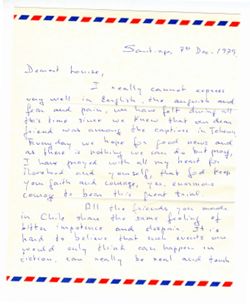 Santiago 7th Dec. 1979
Dearest Louise,
I really cannot express
very well in English, the anguish and
fear and pain, we have felt during all
this time since we knew that our dear
friend was among the captives in Teheran
Everyday we hope for good news and
as there is nothing we can do but pray,
I have prayed with all my heart for
and yourself, that God keep
you faith and courage, yes, enormous
courage to bear this great trial.
All the friends you made
in Chile share the same feeling of
bitter impotence and despair. It is
hard to believe that such events one
would only think can happen in
fiction, can really be real and touch